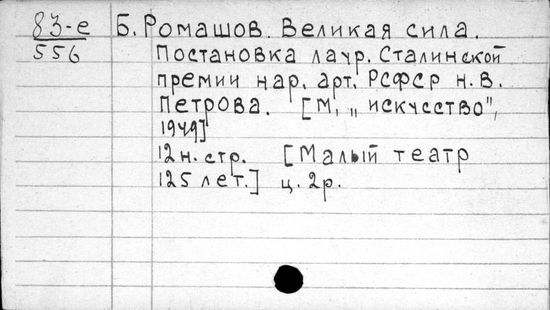 83-е Б. Ромашов. Великая сила.
556 Постановка лаур. Сталинской
премии нар. арт. РСФСР н. в.
Петрова. [М, „искусство",
1949]
12 н. стр. [Малый театр
125 лет.] ц. 2р.